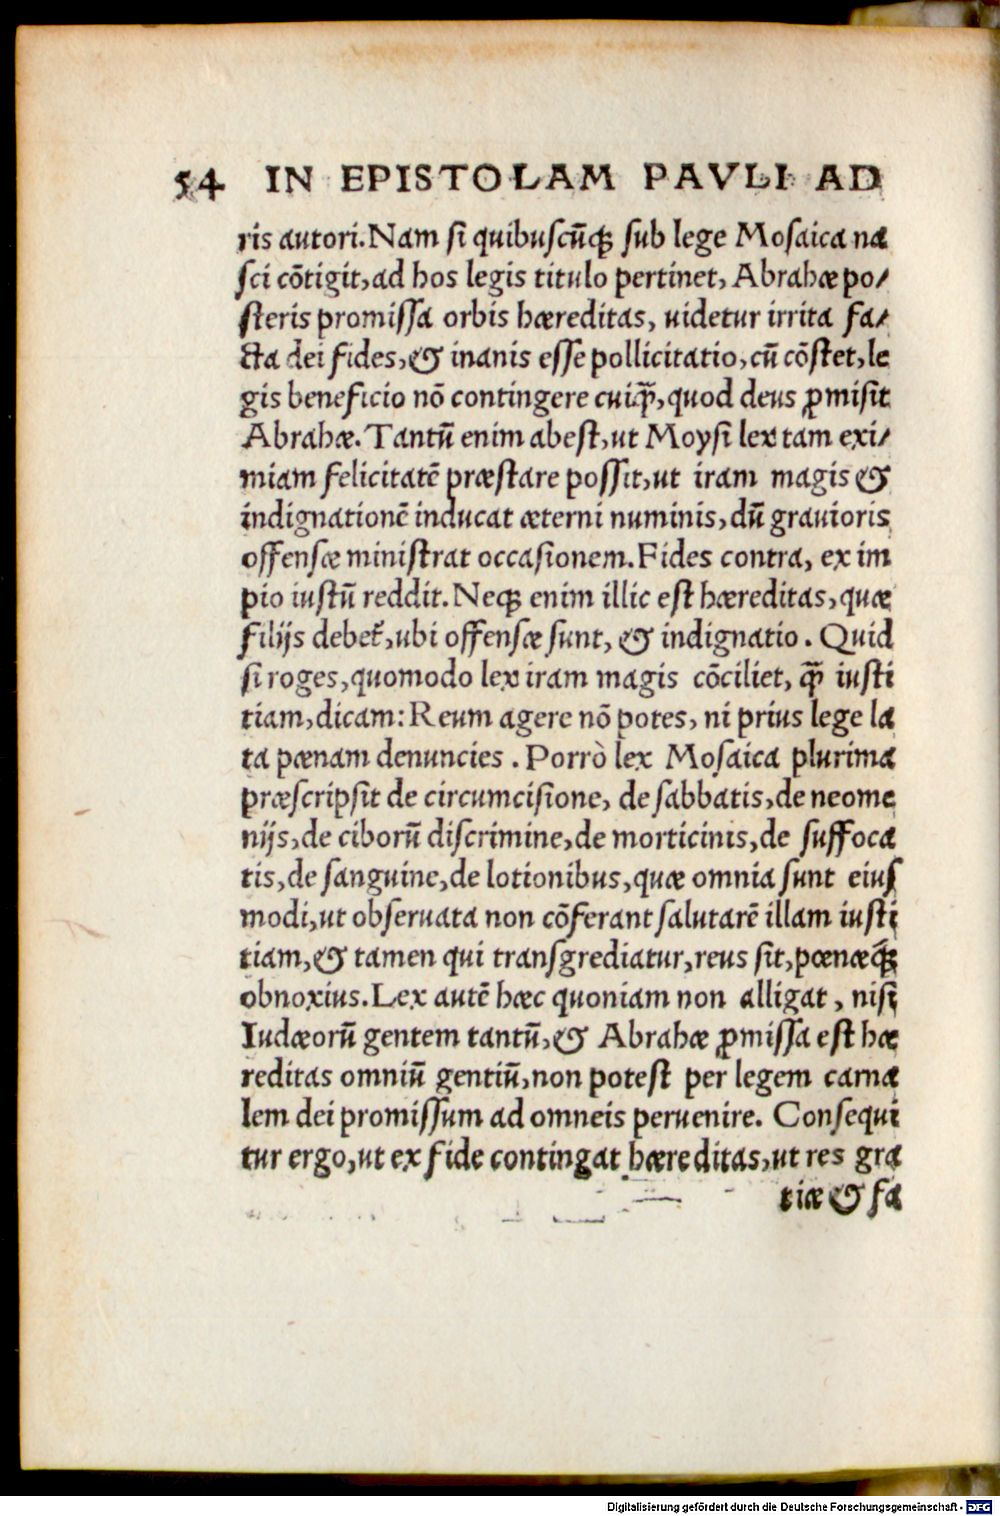 54 IN EPISTOLAM PAVLI AD
ris autori. Nam si quibuscũq; sub lege Mosaica na
sci cõtigit, ad hos legis titulo pertinet, Abrahæ po/
steris promissa orbis hæreditas, uidetur irrita fa/
cta dei fides, & inanis esse pollicitatio, cũ cõstet, le
gis beneficio nõ contingere cuiq̃, quod deus ꝓmisit
Abrahæ. Tantũ enim abest, ut Moysi lex tam exi/
miam felicitatẽ præstare possit, ut iram magis &
indignationẽ inducat æterni numinis, dũ grauioris
offensæ ministrat occasionem. Fides contra, ex im
pio iustũ reddit. Neq; enim illic est hæreditas, quæ
filijs debet᷑, ubi offensæ sunt, & indignatio. Quid
si roges, quomodo lex iram magis cõciliet, q̃ iusti
tiam, dicam: Reum agere nõ potes, ni prius lege la
ta pœnam denuncies. Porrò lex Mosaica plurima
præscripsit de circumcisione, de sabbatis, de neome
nijs, de ciborũ discrimine, de morticinis, de suffoca
tis, de sanguine, de lotionibus, quæ omnia sunt eius
modi, ut obseruata non cõferant salutarẽ illam iusti
tiam, & tamen qui transgrediatur, reus sit, pœnæq;
obnoxius. Lex autẽ hæc quoniam non alligat, nisi
Iudæorũ gentem tantũ, & Abrahæ ꝓmissa est hæ
reditas omniũ gentiũ, non potest per legem carna
lem dei promissum ad omneis peruenire. Consequi
tur ergo, ut ex fide contingat hæreditas, ut res gra
tiæ & fa
Digitalisierung gefördert durch die Deutsche Forschungsgemeinschaft - DFG